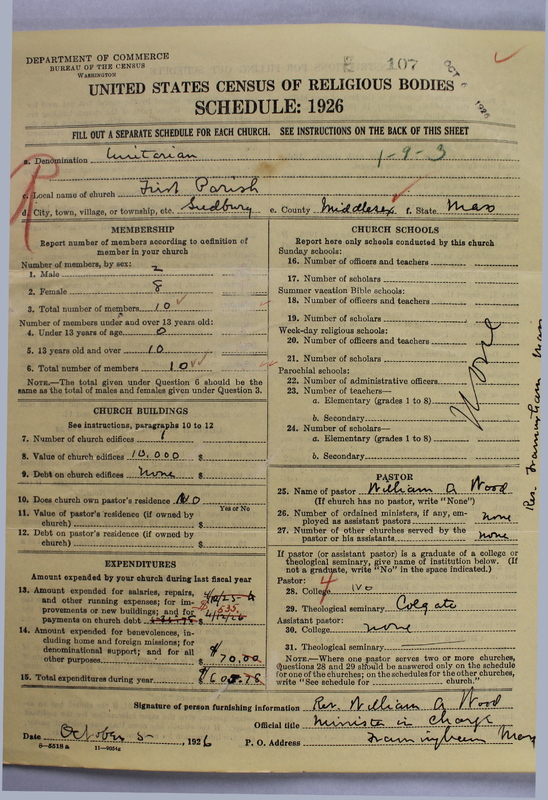 DEPARTMENT OF COMMERCE
BUREAU OF THE CENSUS
WASHINGTON
107
OCT 1926
UNITED STATES CENSUS OF RELIGIOUS BODIES
SCHEDULE: 1926
FILL OUT A SEPARATE SCHEDULE FOR EACH CHURCH. SEE INSTRUCTIONS ON THE BACK OF THIS SHEET
a. Denomination Unitarian 1-9-3
R
c. Local name of church First Parish
d. City, town, village, or township, etc. Sudbury e. County Middlesex f. State Mass
MEMBERSHIP
Report number of members according to definition of
member in your church
Number of members, by sex:
1. Male 2
2. Female 8
3. Total number of members 10
Number of members under and over 13 years old:
4. Under 13 years of age 0
5. 13 years old and over 10
6. Total number of members 10
NOTE.—The total given under Question 6 should be the
same as the total of males and females given under Question 3.
CHURCH BUILDINGS
See instructions, paragraphs 10 to 12
7. Number of church edifices 1
8. Value of church edifices 10,000 $
9. Debt on church edifices None $
10. Does church own pastor's residence? No
Yes or No
11. Value of pastor's residence (if owned by
church) $
12. Debt on pastor's residence (if owned by
church) $
EXPENDITURES
Amount expended by your church during last fiscal year
13. Amount expended for salaries, repairs,
and other running expenses; for im-
provements or new buildings; and for
payments on church debt $ 535.
14. Amount expended for benevolences, in-
cluding home and foreign missions; for
denominational support; and for all
other purposes $ 70.00
15. Total expenditures during year $ 605.78
CHURCH SCHOOLS
Report here only schools conducted by this church
Sunday schools:
16. Number of officers and teachers
17. Number of scholars
Summer vacation Bible schools:
18. Number of officers and teachers
19. Number of scholars
Week-day religious schools:
20. Number of officers and teachers
21. Number of scholars
Parochial schools:
22. Number of administrative officers
23. Number of teachers—
a. Elementary (grades 1 to 8)
b. Secondary
24. Number of scholars—
a. Elementary (grades 1 to 8)
b. Secondary
None
PASTOR
25. Name of pastor William A Wood
(If church has no pastor, write "None")
26. Number of ordained ministers, if any, em-
ployed as assistant pastors none
27. Number of other churches served by the
pastor or his assistants none
If pastor (or assistant pastor) is a graduate of a college or
theological seminary, give name of institution below. (If
not a graduate, write "No" in the space indicated.)
Pastor: 4
28. College No
29. Theological seminary Colgate
Assistant pastor:
30. College none
31. Theological seminary
NOTE.—Where one pastor serves two or more churches,
Questions 28 and 29 should be answered only on the schedule
for one church; on the schedules for the other churches,
write "See schedule for church."
Rev. Framingham Mass
Signature of person furnishing information Rev. William A Wood
Official title Minister in Charge
Date October 5, 1926 P. O. Address Framingham Mass
8—5518a 11—9054a